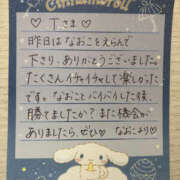 Cinnamoroll
♡ Tさま ♡
昨日はなおこをえらんで
下さり、ありがとうございました。
たくさんイチャイチャして楽しかった
です。なおことバイバイした後、
勝てましたか？また機会が
ありましたら、ぜひ♡ なおこより♡